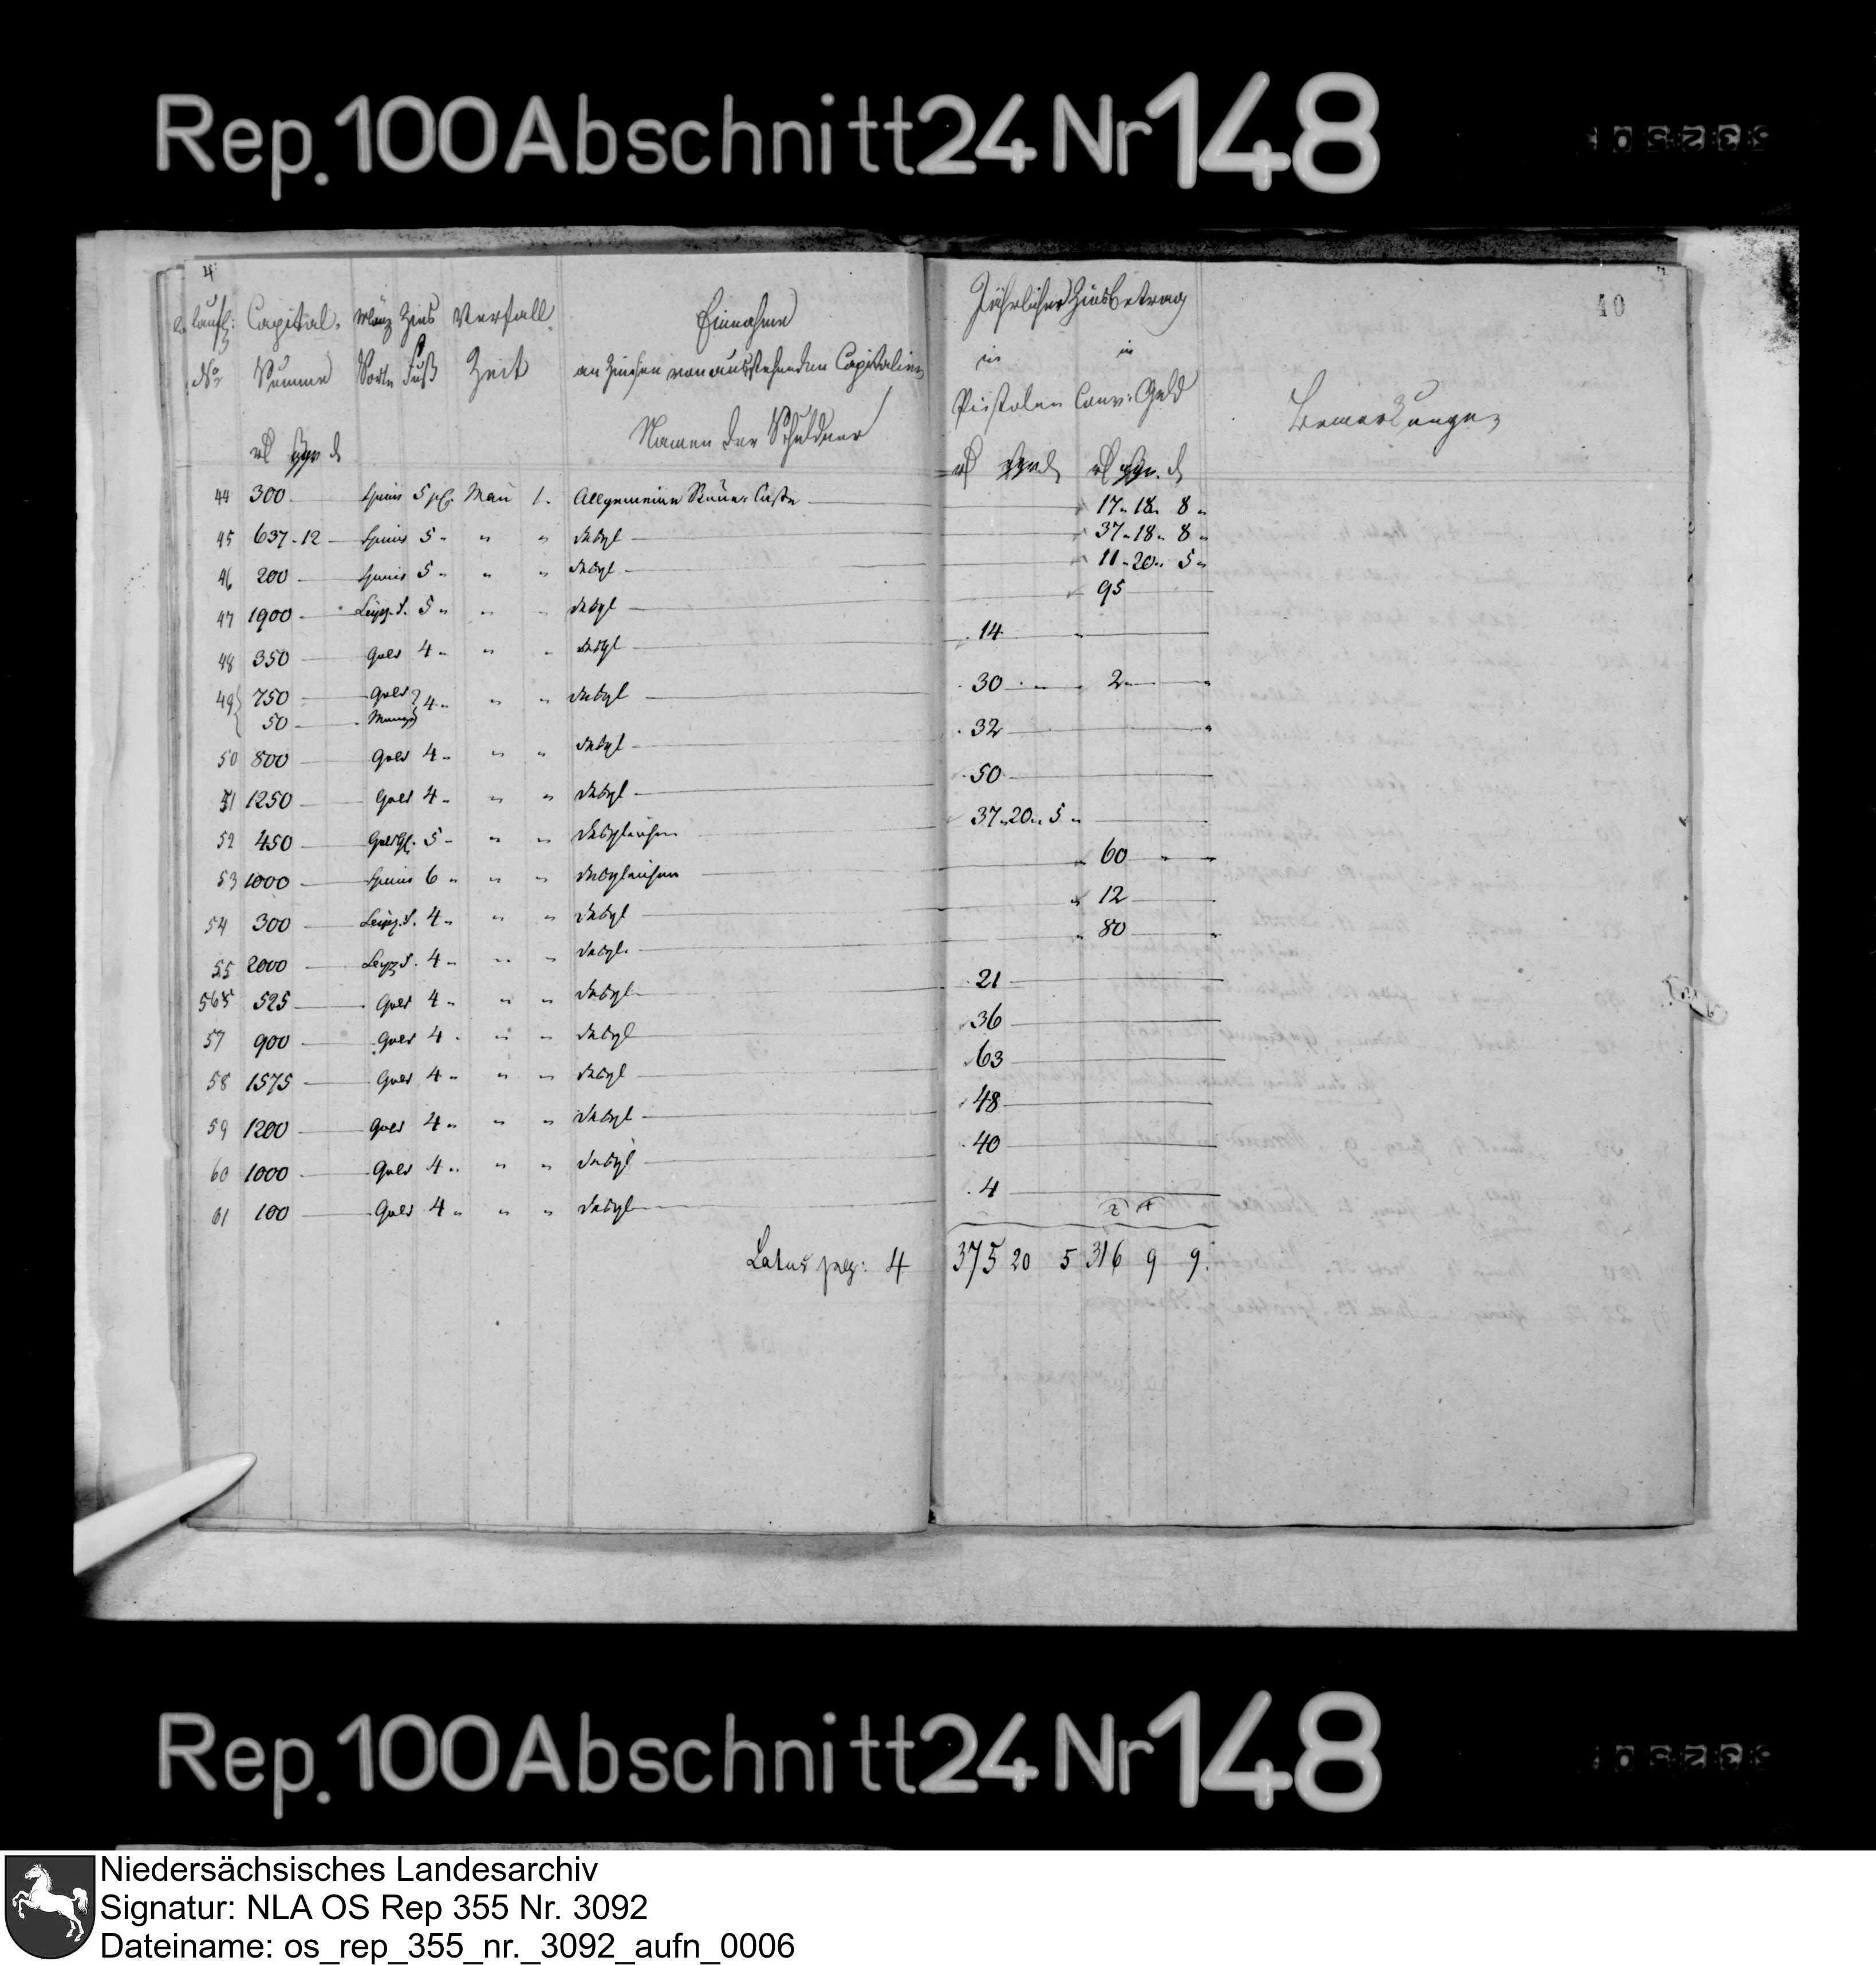 Rep. 100 Abschnitt 24 Nr 148
4
40
laufd: Capital. Münz Zins Verfall Einnahme Jährlicher Zinsbetrag
No Summe Sorte Fuß Zeit an Zinsen von ausstehenden Capitalien in in
Namen der Schuldner Pistolen Conv: Geld Bemerkungen
44 300 5 Maii 1. Allgemeine Steuer Casse 17 18 8
45 637 12 5 " " desgl 37 18 8
46 200 5 " " desgl 11 20 5
47 1900 Leipz. 5 " " desgl 95
48 350 Gold 4 " " desgl 14
49 750 Gold 4 " " desgl 30 2
50 Münze
50 800 Gold 4 " " desgl 32
51 1250 Gold 4 " " desgl 50
52 450 5 " " desgleichen 37 20 5
53 1000 6 " " desgleichen 60
54 300 Leipz. 4 " " desgl 12
55 2000 Leipz. 4 " " desgl. 80
56 525 Gold 4 " " desgl 21
57 900 Gold 4 " " desgl 36
58 1575 Gold 4 " " desgl 63
59 1200 Gold 4 " " desgl 48
60 1000 Gold 4 " " desgl 40
61 100 Gold 4 " " desgl 4
Latus pag: 4 375 20 5 316 9 9
Rep. 100 Abschnitt 24 Nr 148
Niedersächsisches Landesarchiv
Signatur: NLA OS Rep 355 Nr. 3092
Dateiname: os_rep_355_nr._3092_aufn_0006